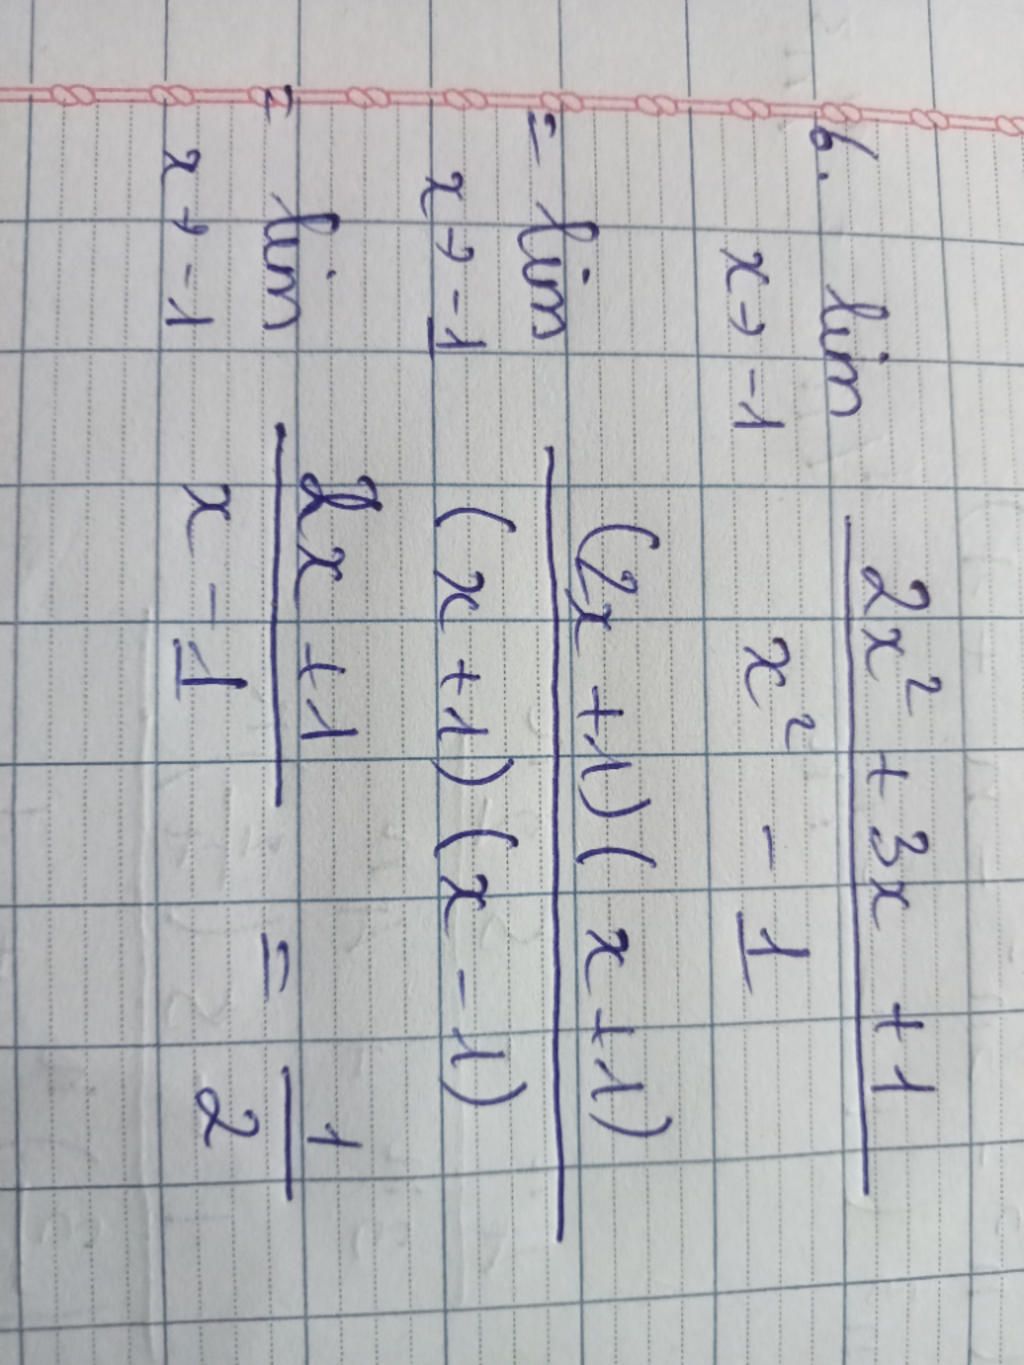 6. lim x→-1 (2x² + 3x + 1)/(x² - 1)
= lim x→-1 ((2x + 1)(x + 1))/((x + 1)(x - 1))
= lim x→-1 (2x + 1)/(x - 1) = 1/2